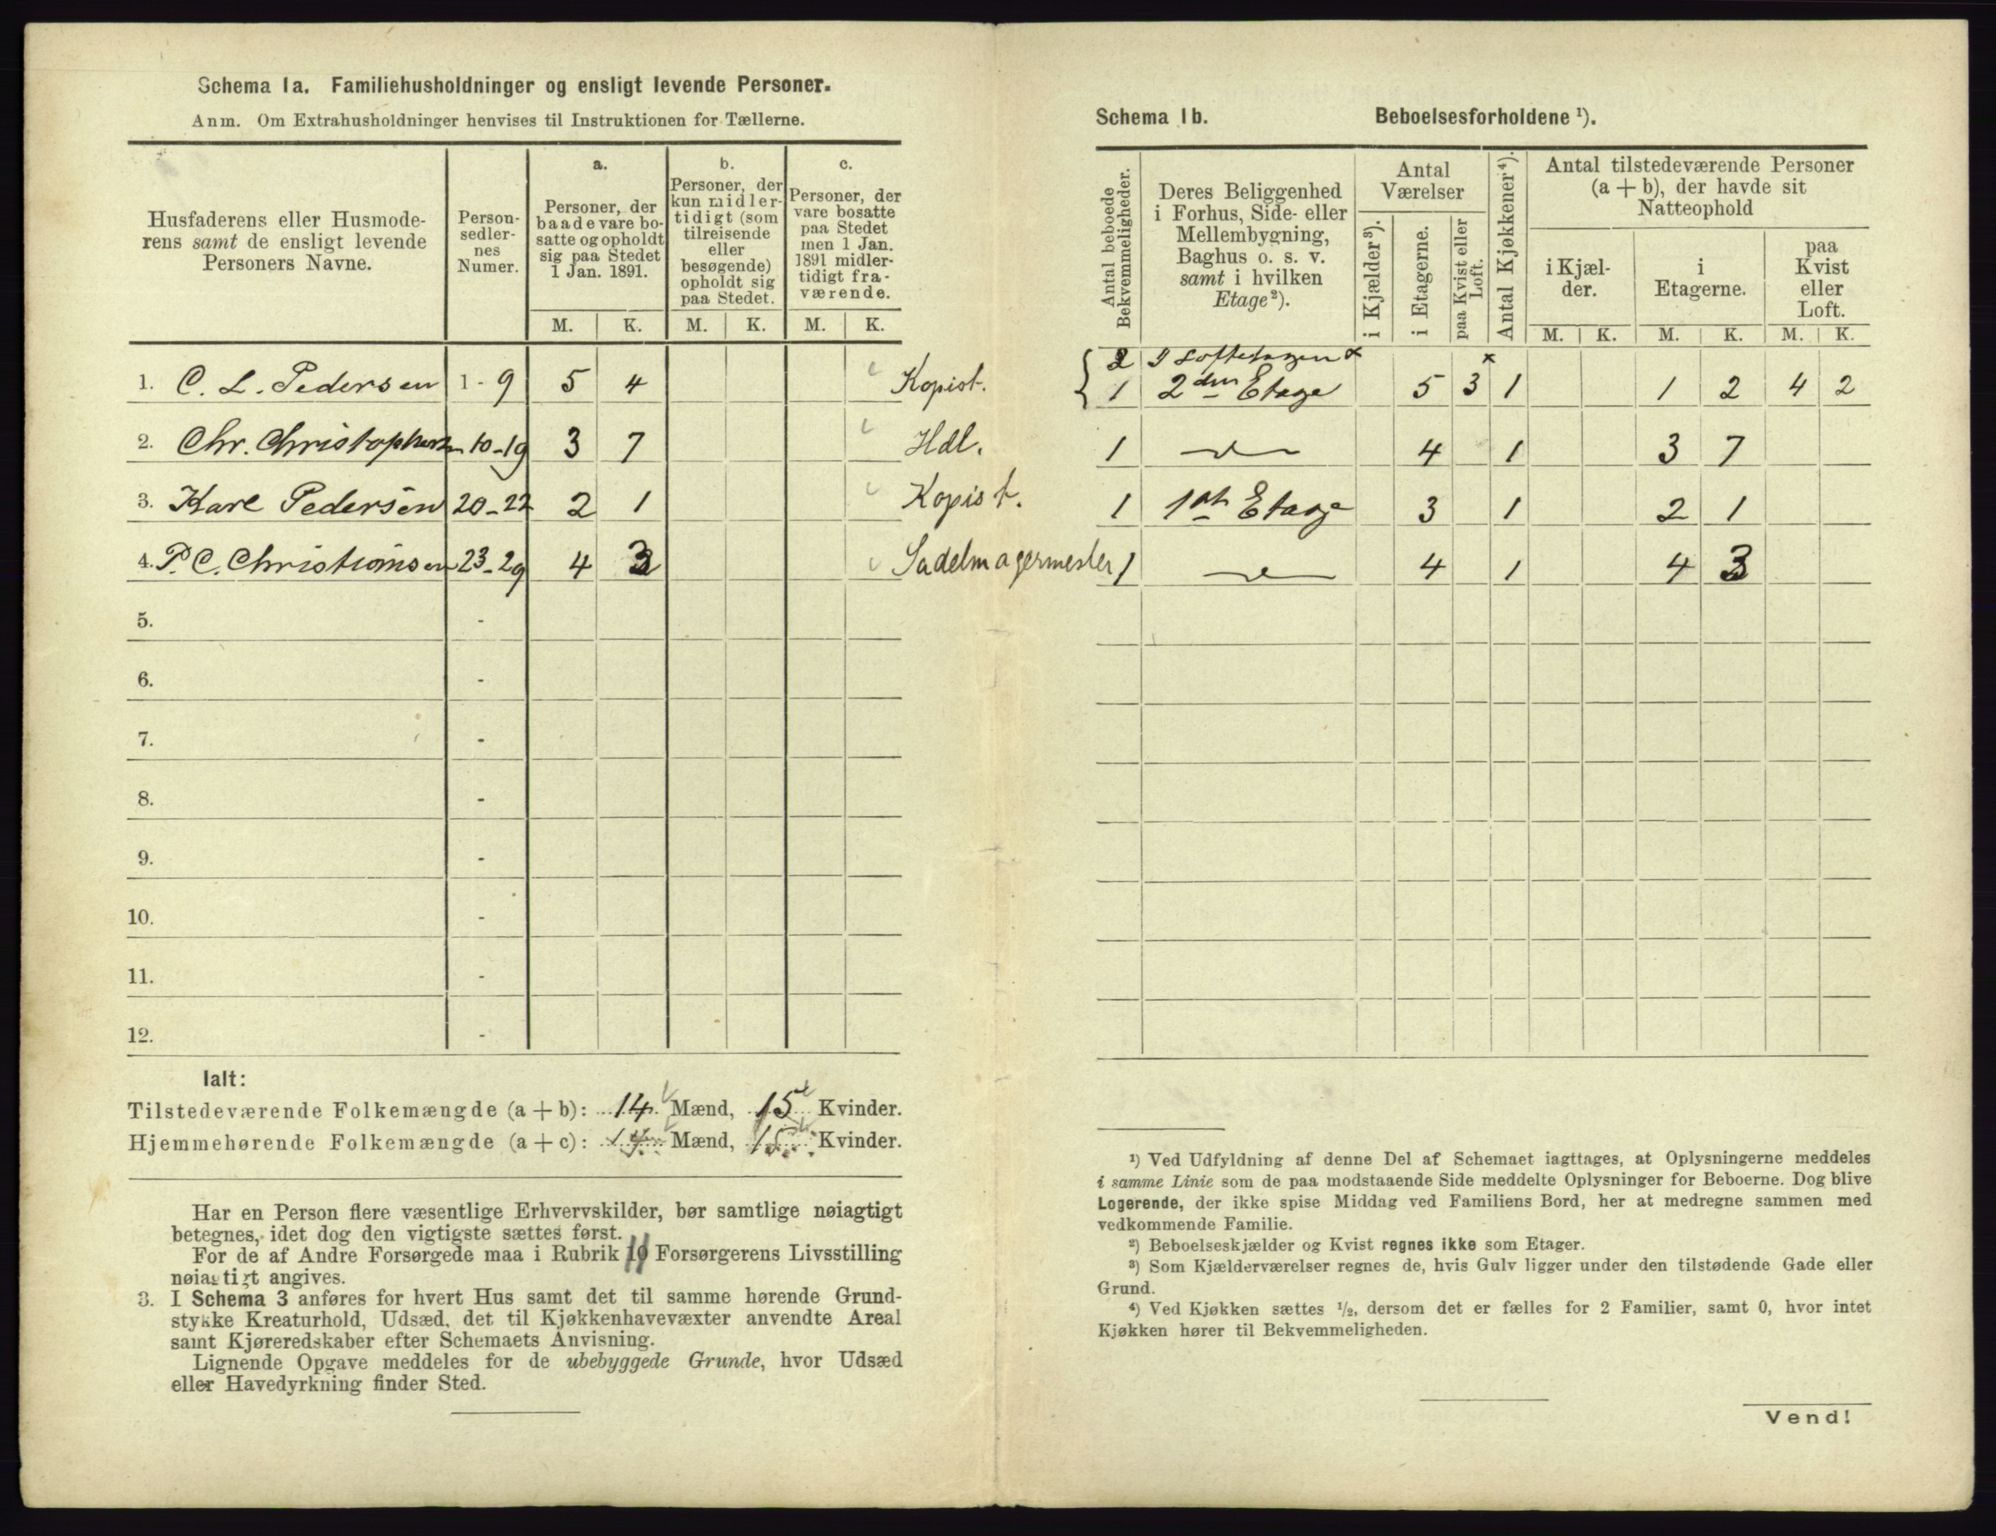 Schema 1a. Familiehusholdninger og ensligt levende Personer.
Anm. Om Extrahusholdninger henvises til Instruktionen for Tællerne.
Husfaderens eller Husmoderens samt de ensligt levende Personers Navne.
Personsedlernes Numer.
a. Personer, der baade vare bosatte og opholdt sig paa Stedet 1 Jan. 1891.
b. Personer, der kun midlertidigt (som tilreisende eller besøgende) opholdt sig paa Stedet.
c. Personer, der vare bosatte paa Stedet men 1 Jan. 1891 midlertidigt fraværende.
M. K. M. K. M. K.
1. C. L. Pedersen 1-9 5 4 Kopist.
2. Chr. Christophersen 10-19 3 7 Hdl.
3. Karl Pedersen 20-22 2 1 Kopist.
4. P. C. Christiansen 23-29 4 3 Sadelmagermester
5. -
6. -
7. -
8. -
9. -
10. -
11. -
12. -
Ialt:
Tilstedeværende Folkemængde (a + b): 14 Mænd, 15 Kvinder.
Hjemmehørende Folkemængde (a + c): 14 Mænd, 15 Kvinder.
Har en Person flere væsentlige Erhvervskilder, bør samtlige nøiagtigt
betegnes, idet dog den vigtigste sættes først.
For de af Andre Forsørgede maa i Rubrik 11 Forsørgerens Livsstilling
nøiagtigt angives.
3. I Schema 3 anføres for hvert Hus samt det til samme hørende Grund-
stykke Kreaturhold, Udsæd, det til Kjøkkenhavevæxter anvendte Areal
samt Kjøreredskaber efter Schemaets Anvisning.
Lignende Opgave meddeles for de ubebyggede Grunde, hvor Udsæd
eller Havedyrkning finder Sted.
Schema 1b. Beboelsesforholdene ¹).
Antal beboede Bekvemmeligheder.
Deres Beliggenhed i Forhus, Side- eller Mellembygning, Baghus o. s. v. samt i hvilken Etage ²).
Antal Værelser
i Kjælder ³).
i Etagerne.
paa Kvist eller Loft.
Antal Kjøkkener ⁴).
Antal tilstedeværende Personer (a + b), der havde sit Natteophold
i Kjælder.
i Etagerne.
paa Kvist eller Loft.
M. K. M. K. M. K.
2 I Loftetagen x x
1 2den Etage 5 3 1 1 2 4 2
1 〃 4 1 3 7
1 1ste Etage 3 1 2 1
1 〃 4 1 4 3
¹) Ved Udfyldning af denne Del af Schemaet iagttages, at Oplysningerne meddeles
i samme Linie som de paa modstaaende Side meddelte Oplysninger for Beboerne. Dog blive
Logerende, der ikke spise Middag ved Familiens Bord, her at medregne sammen med
vedkommende Familie.
²) Beboelseskjælder og Kvist regnes ikke som Etager.
³) Som Kjælderværelser regnes de, hvis Gulv ligger under den tilstødende Gade eller
Grund.
⁴) Ved Kjøkken sættes ½, dersom det er fælles for 2 Familier, samt 0, hvor intet
Kjøkken hører til Bekvemmeligheden.
Vend!